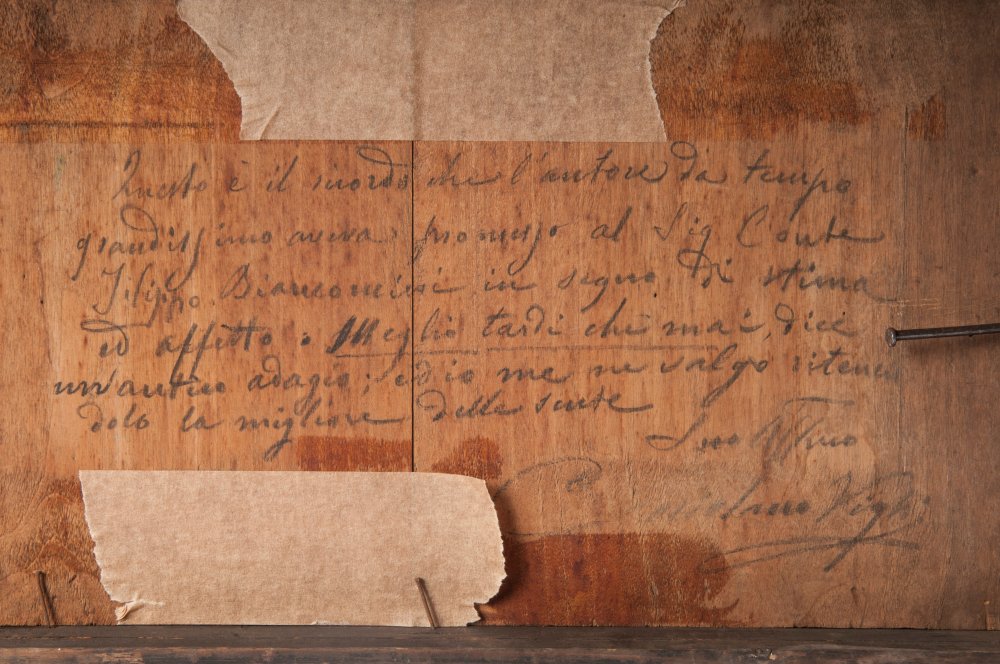 Questo è il ricordo che l'autore da tempo
grandissimo aveva promesso al Sig Conte
Filippo Bianconcini in segno di stima
ed affetto: Meglio tardi che mai, dice
un'antico adagio; ed io me ne valgo ritenen
dolo la migliore delle scuse
Suo Aff.mo
Vighi